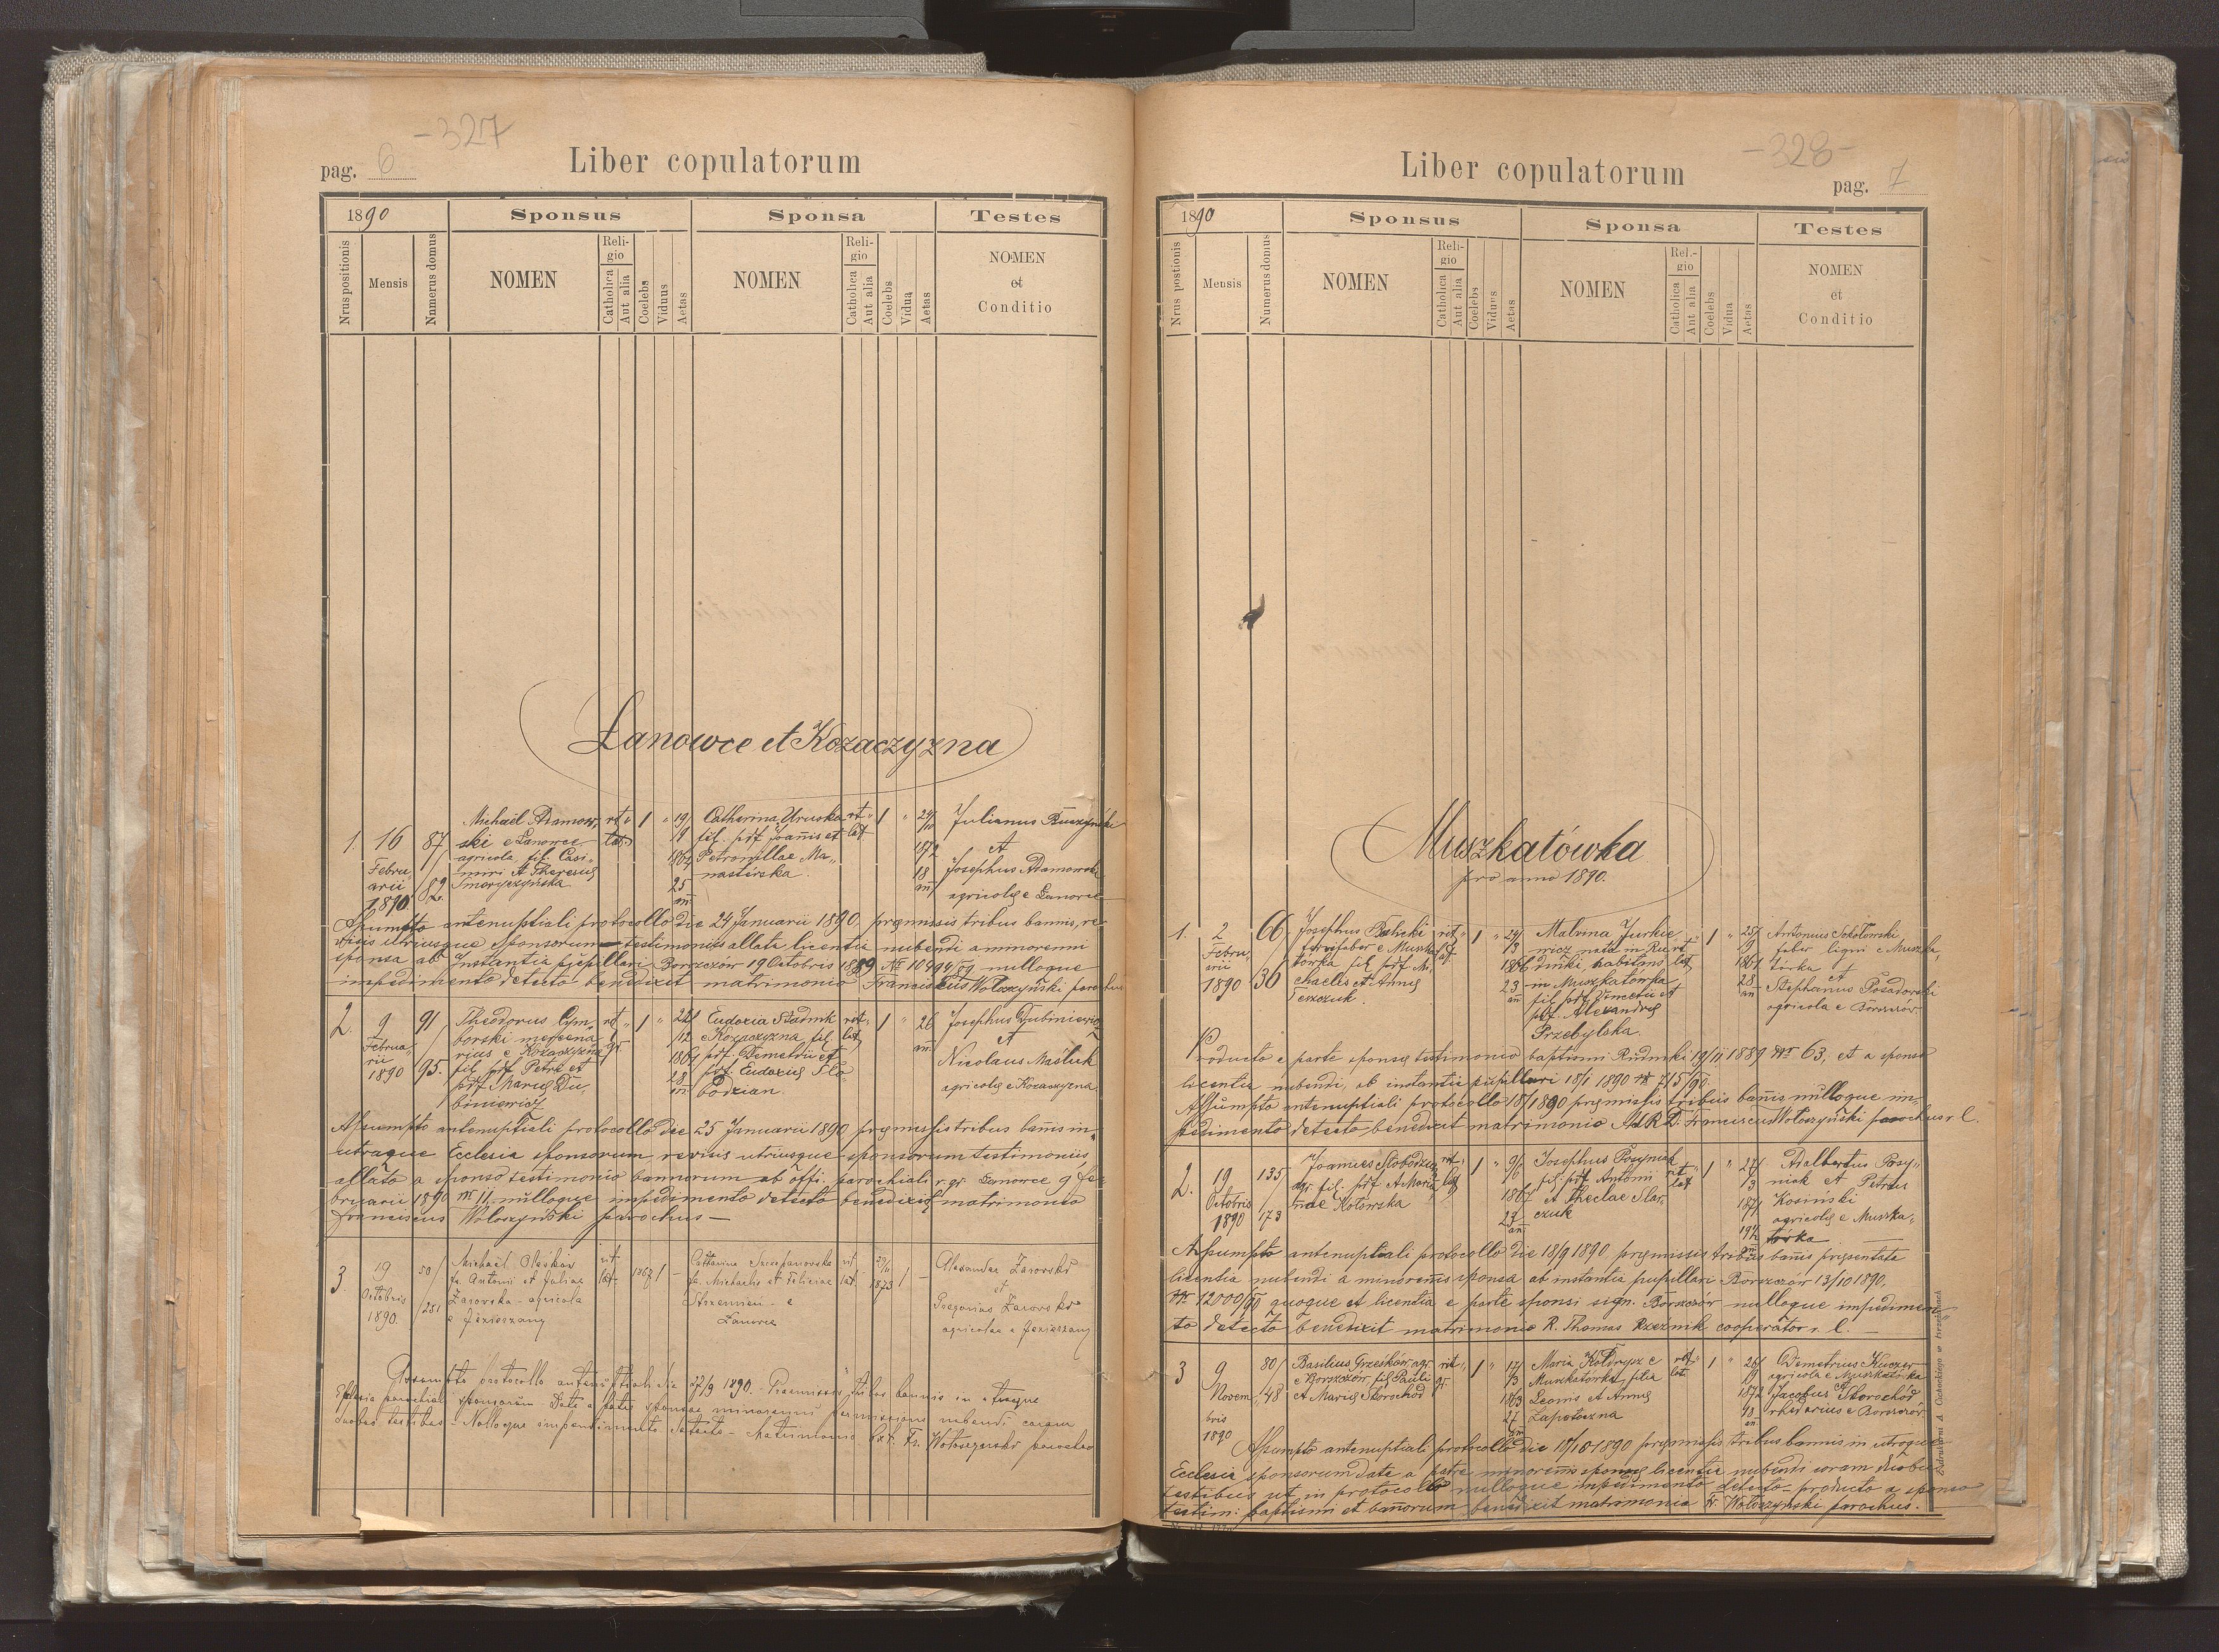 -327
pag. 6
Liber copulatorum
1890
Sponsus
Sponsa
Testes
Nrus positionis
Mensis
Numerus domus
NOMEN
Religio
Catholica
Aut alia
Coelebs
Viduus
Aetas
NOMEN
Religio
Catholica
Aut alia
Coelebs
Vidua
Aetas
NOMEN
et
Conditio
Lanowce et Kozaczyzna
1. 16 Februarii 1890
87/82.
Michael Adamowski e Lanowce
agricola fil. Casi-
miri et Theresiae
Smoryczyńska
rit lat. 1 " 19/9 1864 25 an
Catharina
fil. pdf Joannis et
Petronillae Ma-
nasterska.
rit lat 1 " 1872 18 an
Julianus Buczyński
et
Josephus Adamowski
agricolae e Lanowce
Assumpto antenuptiali protocollo die 24 Januarii 1890, praemissis tribus bannis, re-
visis utriusque sponsorum testimoniis allata licentia nubendi a minorenni
sponsa ab Instantia pupillari Borszczów 19 Octobris 1889 No 10494/89 nulloque
impedimento detecto benedixit matrimonio Franciscus Wołoszyński parochus
2. 9 Februarii 1890
91/95.
Theodorus Cym-
borski mercena-
rius e Kozaczyzna
fil. pdf Petri et
pdf Mariae Du-
biniewicz
rit gr. 1 " 12 1861 28 an
Eudoxia Stadnik
e Kozaczyzna fil.
pdf. Demetrii et
pdf. Eudoxiae Sło-
bodzian.
rit lat 1 " 26 an
Josephus Dubiniewicz
et
Nicolaus Maśluk
agricolae e Kozaczyzna.
Assumpto antenuptiali protocollo die 25 Januarii 1890 praemissis tribus bannis in
utraque Ecclesia sponsorum, revisis utriusque sponsorum testimoniis
allato a sponso testimonio bannorum ab offi. parochiali r. gr. Lanowce 9 Fe-
bruarii 1890 nr 11, nulloque impedimento detecto benedixit matrimonio
Franciscus Wołoszyński parochus —
3 19 Octobris 1890
50/281
Michael Oleśków
fs. Antonii et Juliae
Zarovska - agricola
e Jezierzany
rit lat. 1867 1 -
Catharina Szczepanovska
fa. Michaelis et Feliciae
Strzemień - e
Lanovce
rit lat. 1873 1 -
Alexander Zarovski
et
Gregorius Zarovski
agricolae e Jezierzany
Assumpto protocollo antenuptiali die 27/9 1890. - Praemissis tribus bannis in utraque
Ecclesia parochiali sponsorum. Data a patre sponsae minorenni permissione nubendi coram
duobus testibus - Nulloque impedimento detecto - Matrimonio bxt. Fr. Wołoszyński parochus
-328-
Liber copulatorum
pag. 7
1890
Sponsus
Sponsa
Testes
Nrus postionis
Mensis
Numerus domus
NOMEN
Religio
Catholica
Aut alia
Coelebs
Viduus
Aetas
NOMEN
Religio
Catholica
Aut alia
Coelebs
Vidua
Aetas
NOMEN
et
Conditio
Muszkatówka
pro anno 1890.
1. 2 Februarii 1890
66/36
Josephus Balicki
ferrifaber e Muszka-
tówka fil pdf Mi-
chaelis et Annae
rit lat. 1 " 24/3 1866 23 an
Malvina Jurkie-
wicz nata in Ru-
dniki, habitans
in Muszkatówka
fil. pdf. Demetrii et
pdf. Alexandrae
Przebylska.
rit lat 1 " 25/9 1861 28 an
Antonius Sokołowski
faber ligni e Muszka-
tórka
et
Stephanus Posadowski
agricola e Borszczów
Producto e parte sponsae testimonio baptismi Rudniki 19/11 1889 Nr 63, et a sponso
licentia nubendi, ab instantia pupillari 18/1 1890 nr 715/90.
Assumpto antenuptiali protocollo 18/1 1890 praemissis tribus bannis nulloque im-
pedimento detecto benedixit matrimonio AdR D. Franciscus Wołoszyński parochus r. l.
2. 19 Octobris 1890
135/173
Joannes Słobodzian
agr. fil. pdf et Maria-
nnae Kotowska
rit lat 1 " 1867 23 an
Josephus Posyniak
fil. pdf Antonii
et Theclae Slar-
czuk
rit lat 1 " 27/3 1871 19½ an
Adalbertus Posy-
niak et Petrus
Kosiński
agricolae e Muszka-
tówka
Assumpto antenuptiali protocollo die 18/9 1890, praemissis tribus bannis praesentata
licentia nubendi a minorenis sponsa ab instantia pupillari Borszczów 13/10 1890,
Nr 12000/90 quoque et licentia e parte sponsi sign. Borszczów nulloque impedimen-
to detecto benedixit matrimonio R. Thomas Rzeźnik cooperator r. l. —
3 9 Novembris 1890
80/48
Basilius Grześków agr.
e Borszczów, fil. Pauli
et Mariae Skorochód
rit gr. 1 " 17/3 1863 27 an
Maria Kołdrysz e
Muszkatówka, filia
Leonis et Annae
Zapotoczna
rit lat. 1 " 26/9 1872 18 an
Demetrius Kuczer
agricola e Muszkatówka
Jacobus Skorochód
rhedarius e Borszczów.
Assumpto antenuptiali protocollo die 18/10 1890 praemissis tribus bannis in utroque
Ecclesia sponsorum data a patre minorennis sponsae licentia nubendi coram duobus
testibus ut in protocollo nulloque impedimento detecto - producto a sponso
testim: baptismi et bannorum benedixit matrimonio Fr. Wołoszyński parochus.